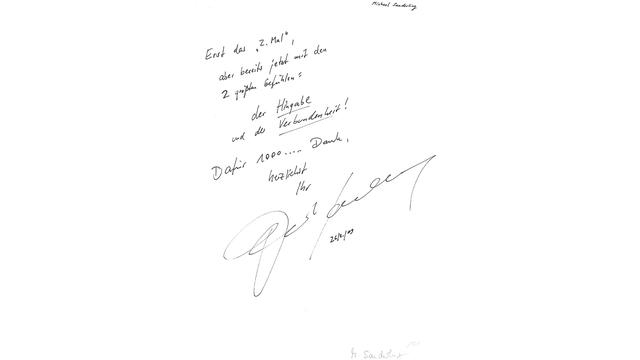 Michael Sanderling
Erst das „2. Mal",
aber bereits jetzt mit den
2 größten Gefühlen:
der Hingabe
und der Verbundenheit!
Dafür 1000.... Dank,
herzlichst
Ihr
M. Sanderling